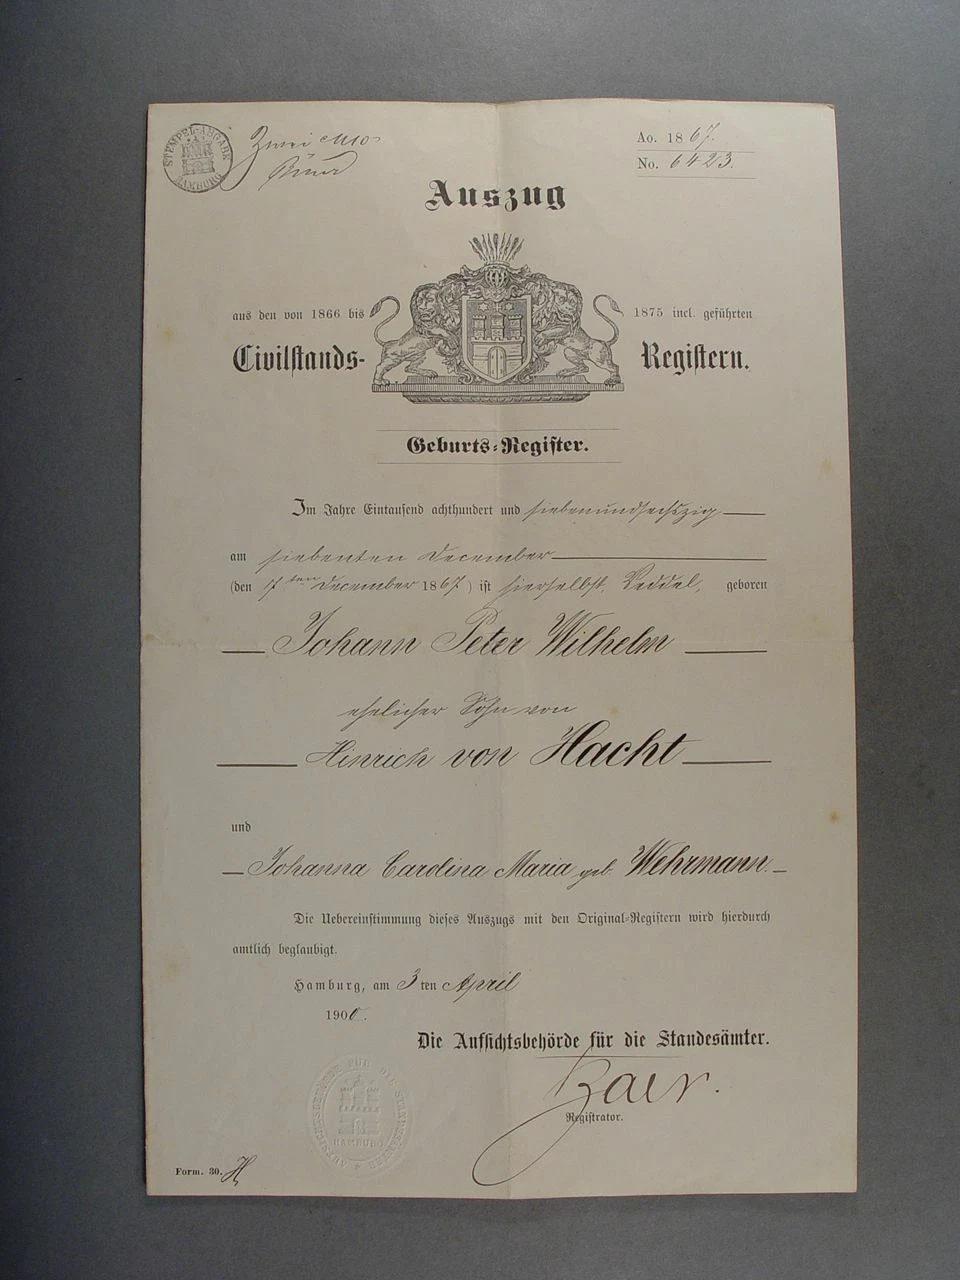 STEMPEL-ABGABE HAMBURG
Zwei
Ao. 1867.
No. 6423.
Auszug
aus den von 1866 bis 1875 incl. geführten
Civilstands-Registern.
Geburts-Register.
Im Jahre Eintausend achthundert und siebenundsechszig
am siebenten December
(den 7ten December 1867) ist hierselbst, Veddel, geboren
Johann Peter Wilhelm
ehelicher Sohn von
Hinrich von Hacht
und
Johanna Carolina Maria geb. Wehrmann.
Die Uebereinstimmung dieses Auszugs mit den Original-Registern wird hierdurch
amtlich beglaubigt.
Hamburg, am 3ten April
1900.
Die Aufsichtsbehörde für die Standesämter.
Registrator.
AUFSICHTSBEHÖRDE FÜR DIE STANDESÄMTER
HAMBURG
Form. 30.